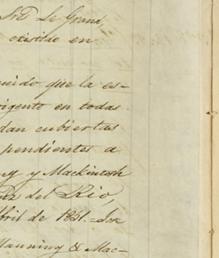 N.D. Le Grand,
existde en
uido que la es-
igente en todas
dan cubiertas
pendientes a
ng y Mackintosh
del Rio
bril de 1851.
Manning & Mac-